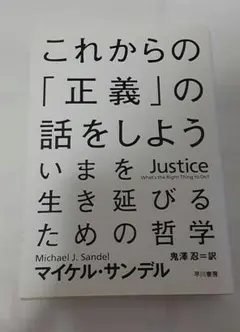 これからの
「正義」の
話をしよう
いまを
Justice
What's the Right Thing to Do?
生き延びる
ための哲学
Michael J. Sandel
鬼澤 忍=訳
マイケル・サンデル
早川書房